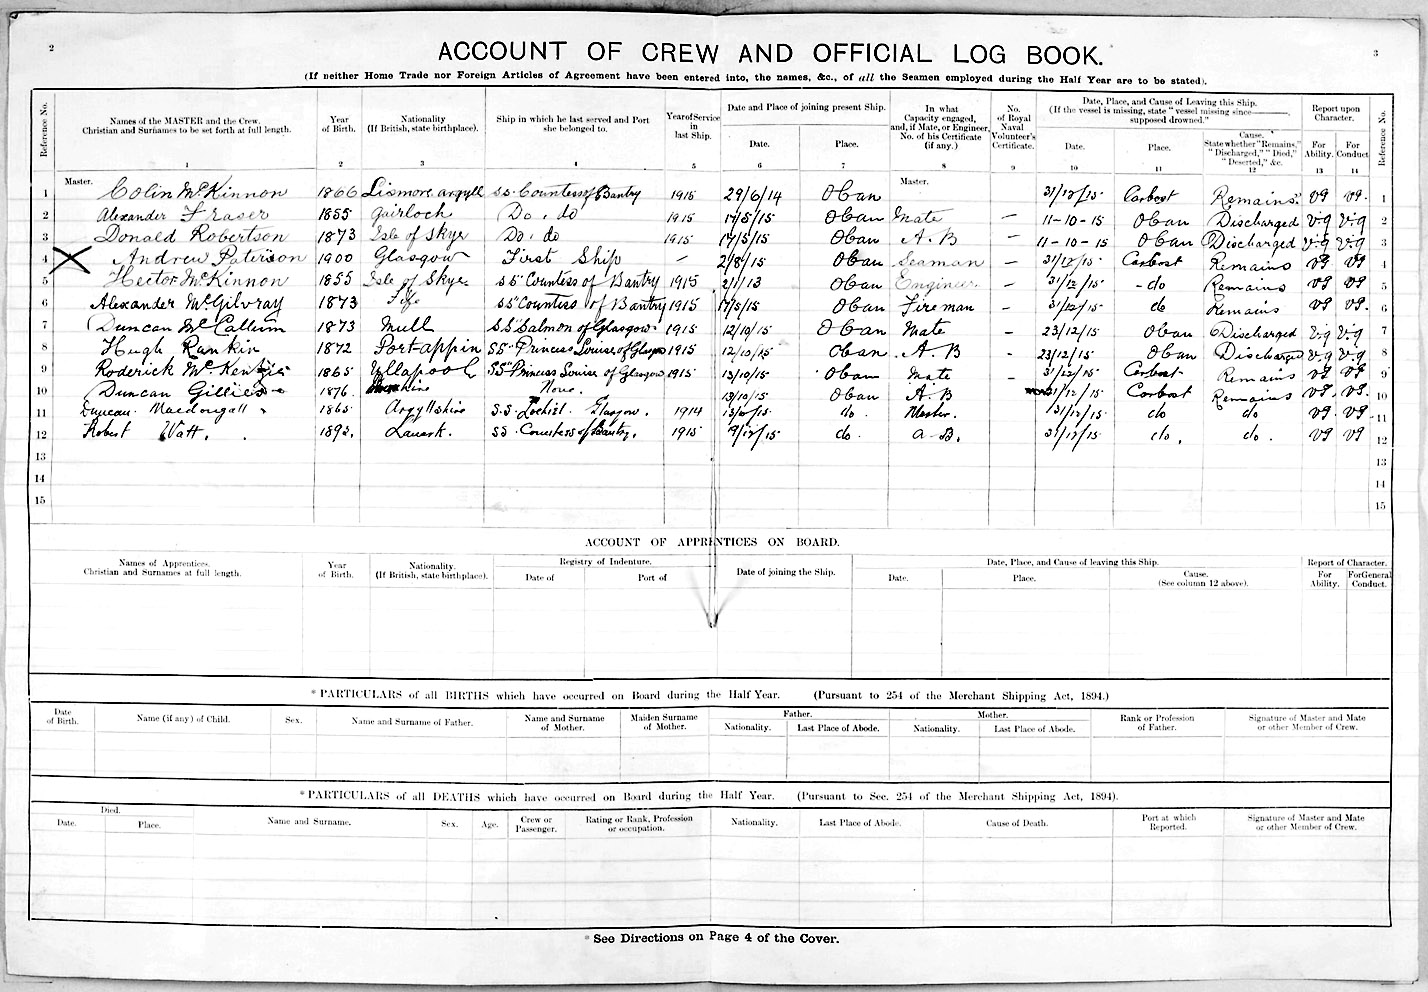 2
3
ACCOUNT OF CREW AND OFFICIAL LOG BOOK.
(If neither Home Trade nor Foreign Articles of Agreement have been entered into, the names, &c., of all the Seamen employed during the Half Year are to be stated).
Reference No. Names of the MASTER and the Crew. Christian and Surnames to be set forth at full length. Year of Birth. Nationality (If British, state birthplace). Ship in which he last served and Port she belonged to. Year of Service in last Ship. Date and Place of joining present Ship. Date. Place. In what Capacity engaged, and, if Mate, or Engineer, No. of his Certificate (if any.) No. of Royal Naval Volunteer's Certificate. Date, Place, and Cause of Leaving this Ship. (If the vessel is missing, state "vessel missing since———, supposed drowned." Date. Place. Cause. State whether "Remains," "Discharged," "Died," "Deserted," &c. Report upon Character. For Ability. For Conduct Reference No.
1 2 3 4 5 6 7 8 9 10 11 12 13 14
Master. Master.
1 Colin McKinnon 1866 Lismore argyll SS. Countess of Bantry 1915 29/6/14 Oban 31/12/15 Carbost Remains. vg vg. 1
2 Alexander Fraser 1855 Gairloch Do. do 1915 17/5/15 Oban Mate — 11-10-15 Oban Discharged v.g v.g 2
3 Donald Robertson 1873 Isle of Skye Do. do 1915 17/5/15 Oban A.B — 11-10-15 Oban Discharged v.g v.g 3
4 Andrew Paterson 1900 Glasgow First Ship — 2/8/15 Oban Seaman — 31/12/15 Carbost Remains vg vg 4
5 Hector McKinnon 1855 Isle of Skye SS "Countess of Bantry 1915 2/1/13 Oban Engineer — 31/12/15 - do Remains vg vg 5
6 Alexander McGilvray 1873 Fife SS "Countess of Bantry 1915 17/5/15 Oban Fireman — 31/12/15 do Remains vg vg. 6
7 Duncan McCallum 1873 Mull S.S "Salmon of Glasgow 1915 12/10/15 Oban Mate — 23/12/15 Oban Discharged v.g v.g 7
8 Hugh Rankin 1872 Port-appin SS "Princess Louise of Glasgow 1915 12/10/15 Oban A.B — 23/12/15 Oban Discharged v.g v.g 8
9 Roderick McKenzie 1865 Ullapool SS "Princess Louise of Glasgow 1915 13/10/15 Oban Mate — 31/12/15 Carbost Remains vg vg 9
10 Duncan Gillies 1876 None 13/10/15 Oban A.B 31/12/15 Carbost Remains vg. vg. 10
11 Duncan Macdougall 1865 Argyllshire S.S. Lochiel Glasgow. 1914 do. Master. 31/12/15 do do vg. vg. 11
12 Robert Watt. 1892. Lanark. SS. Countess of Bantry. 1915 do. A.B. 31/12/15 do. do. vg vg 12
13 13
14 14
15 15
ACCOUNT OF APPRENTICES ON BOARD.
Names of Apprentices. Christian and Surnames at full length. Year of Birth. Nationality. (If British, state birthplace). Registry of Indenture. Date of Port of Date of joining the Ship. Date, Place, and Cause of leaving this Ship. Date. Place. Cause. (See column 12 above). Report of Character. For Ability. For General Conduct.
* PARTICULARS of all BIRTHS which have occurred on Board during the Half Year. (Pursuant to 254 of the Merchant Shipping Act, 1894.)
Date of Birth. Name (if any) of Child. Sex. Name and Surname of Father. Name and Surname of Mother. Maiden Surname of Mother. Father. Nationality. Last Place of Abode. Mother. Nationality. Last Place of Abode. Rank or Profession of Father. Signature of Master and Mate or other Member of Crew.
* PARTICULARS of all DEATHS which have occurred on Board during the Half Year. (Pursuant to Sec. 254 of the Merchant Shipping Act, 1894).
Died. Date. Place. Name and Surname. Sex. Age. Crew or Passenger. Rating or Rank, Profession or occupation. Nationality. Last Place of Abode. Cause of Death. Port at which Reported. Signature of Master and Mate or other Member of Crew.
* See Directions on Page 4 of the Cover.